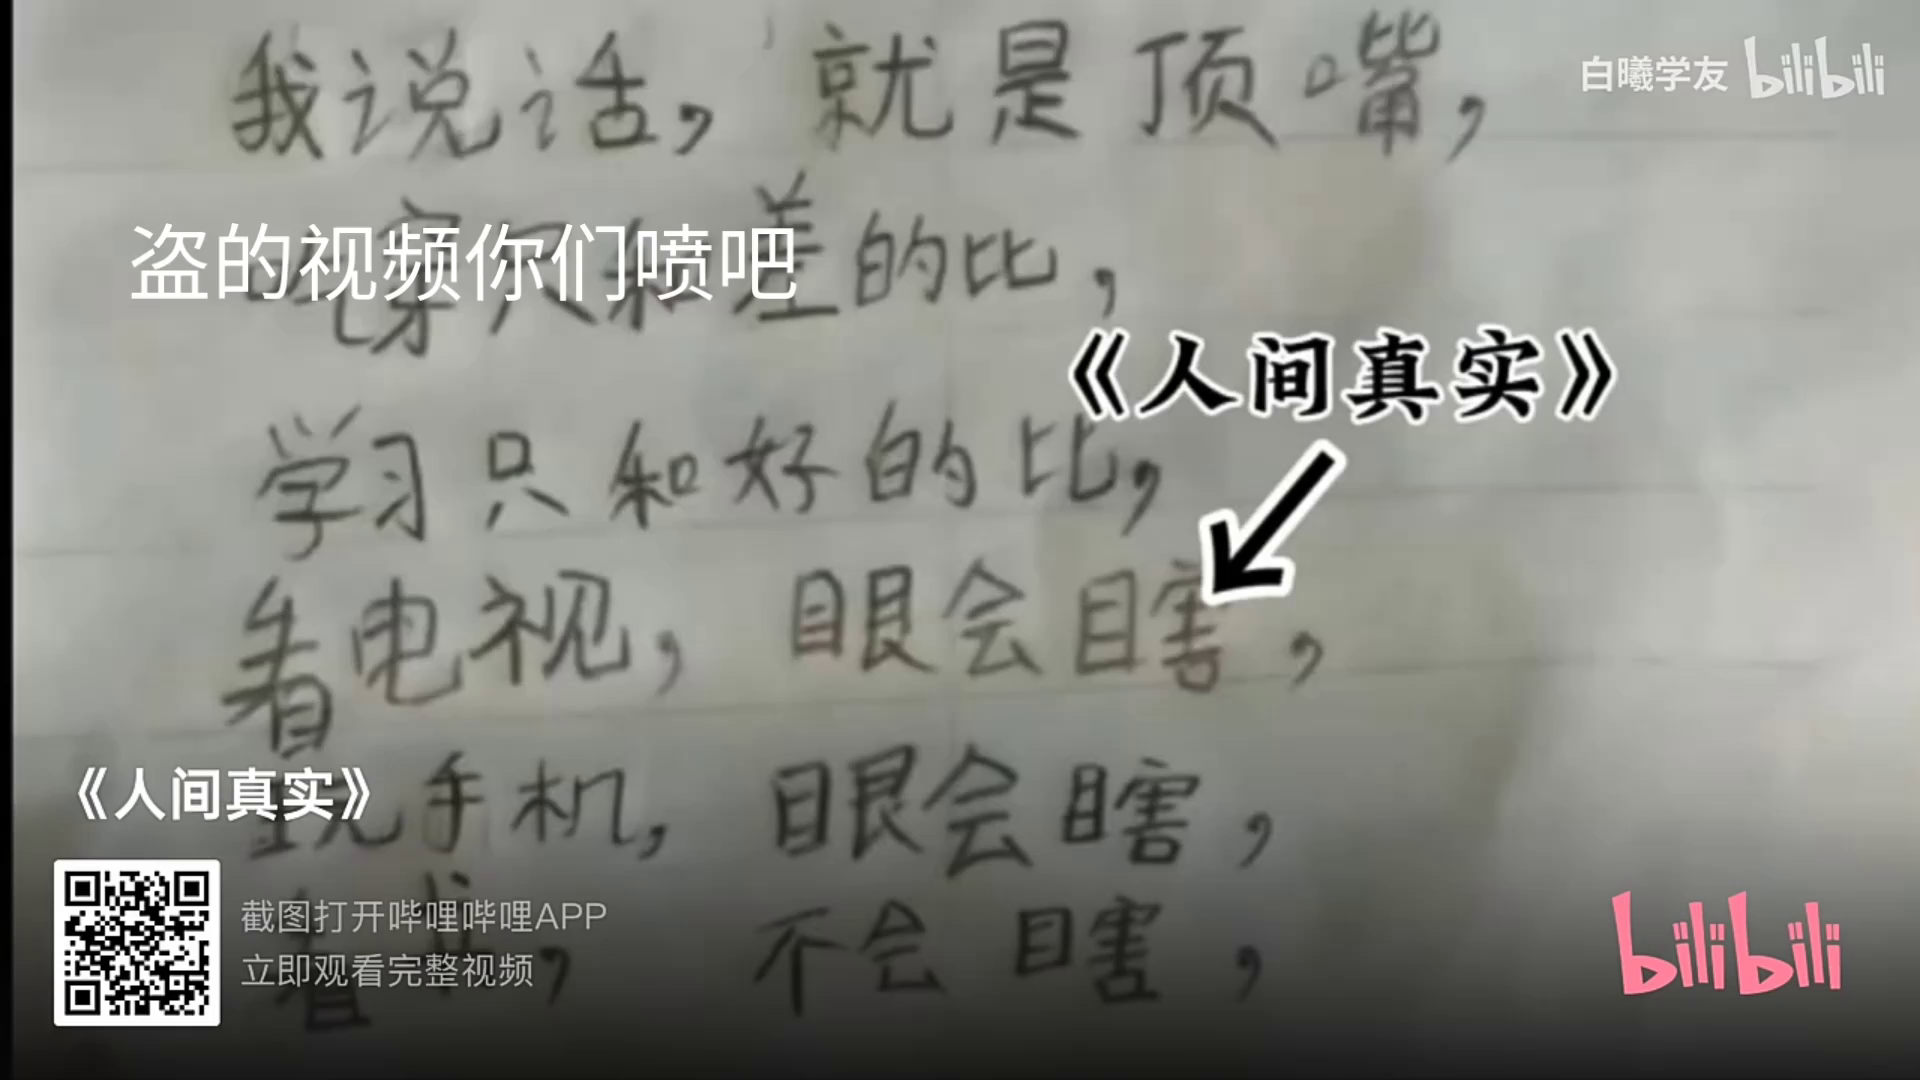 我说话，就是顶嘴，
白曦学友 bilibili
吃穿只和差的比，
盗的视频你们喷吧
《人间真实》
学习只和好的比，
看电视，眼会瞎，
玩手机，眼会瞎，
《人间真实》
看书，不会瞎，
截图打开哔哩哔哩APP
立即观看完整视频
bilibili